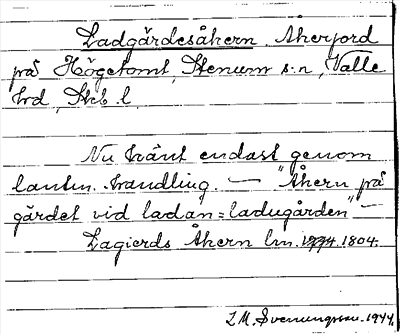 Ladgårdesåkern. Åkerjord
på Högetomt, Stenum s:n, Valle
hd, Skb. l.
Nu känt endast genom
lantm. handling. — "Åkern på
gärdet vid ladan = ladugården" —
Lagierds Åkern lm. 1804.
L M. Svenungsson. 1944.